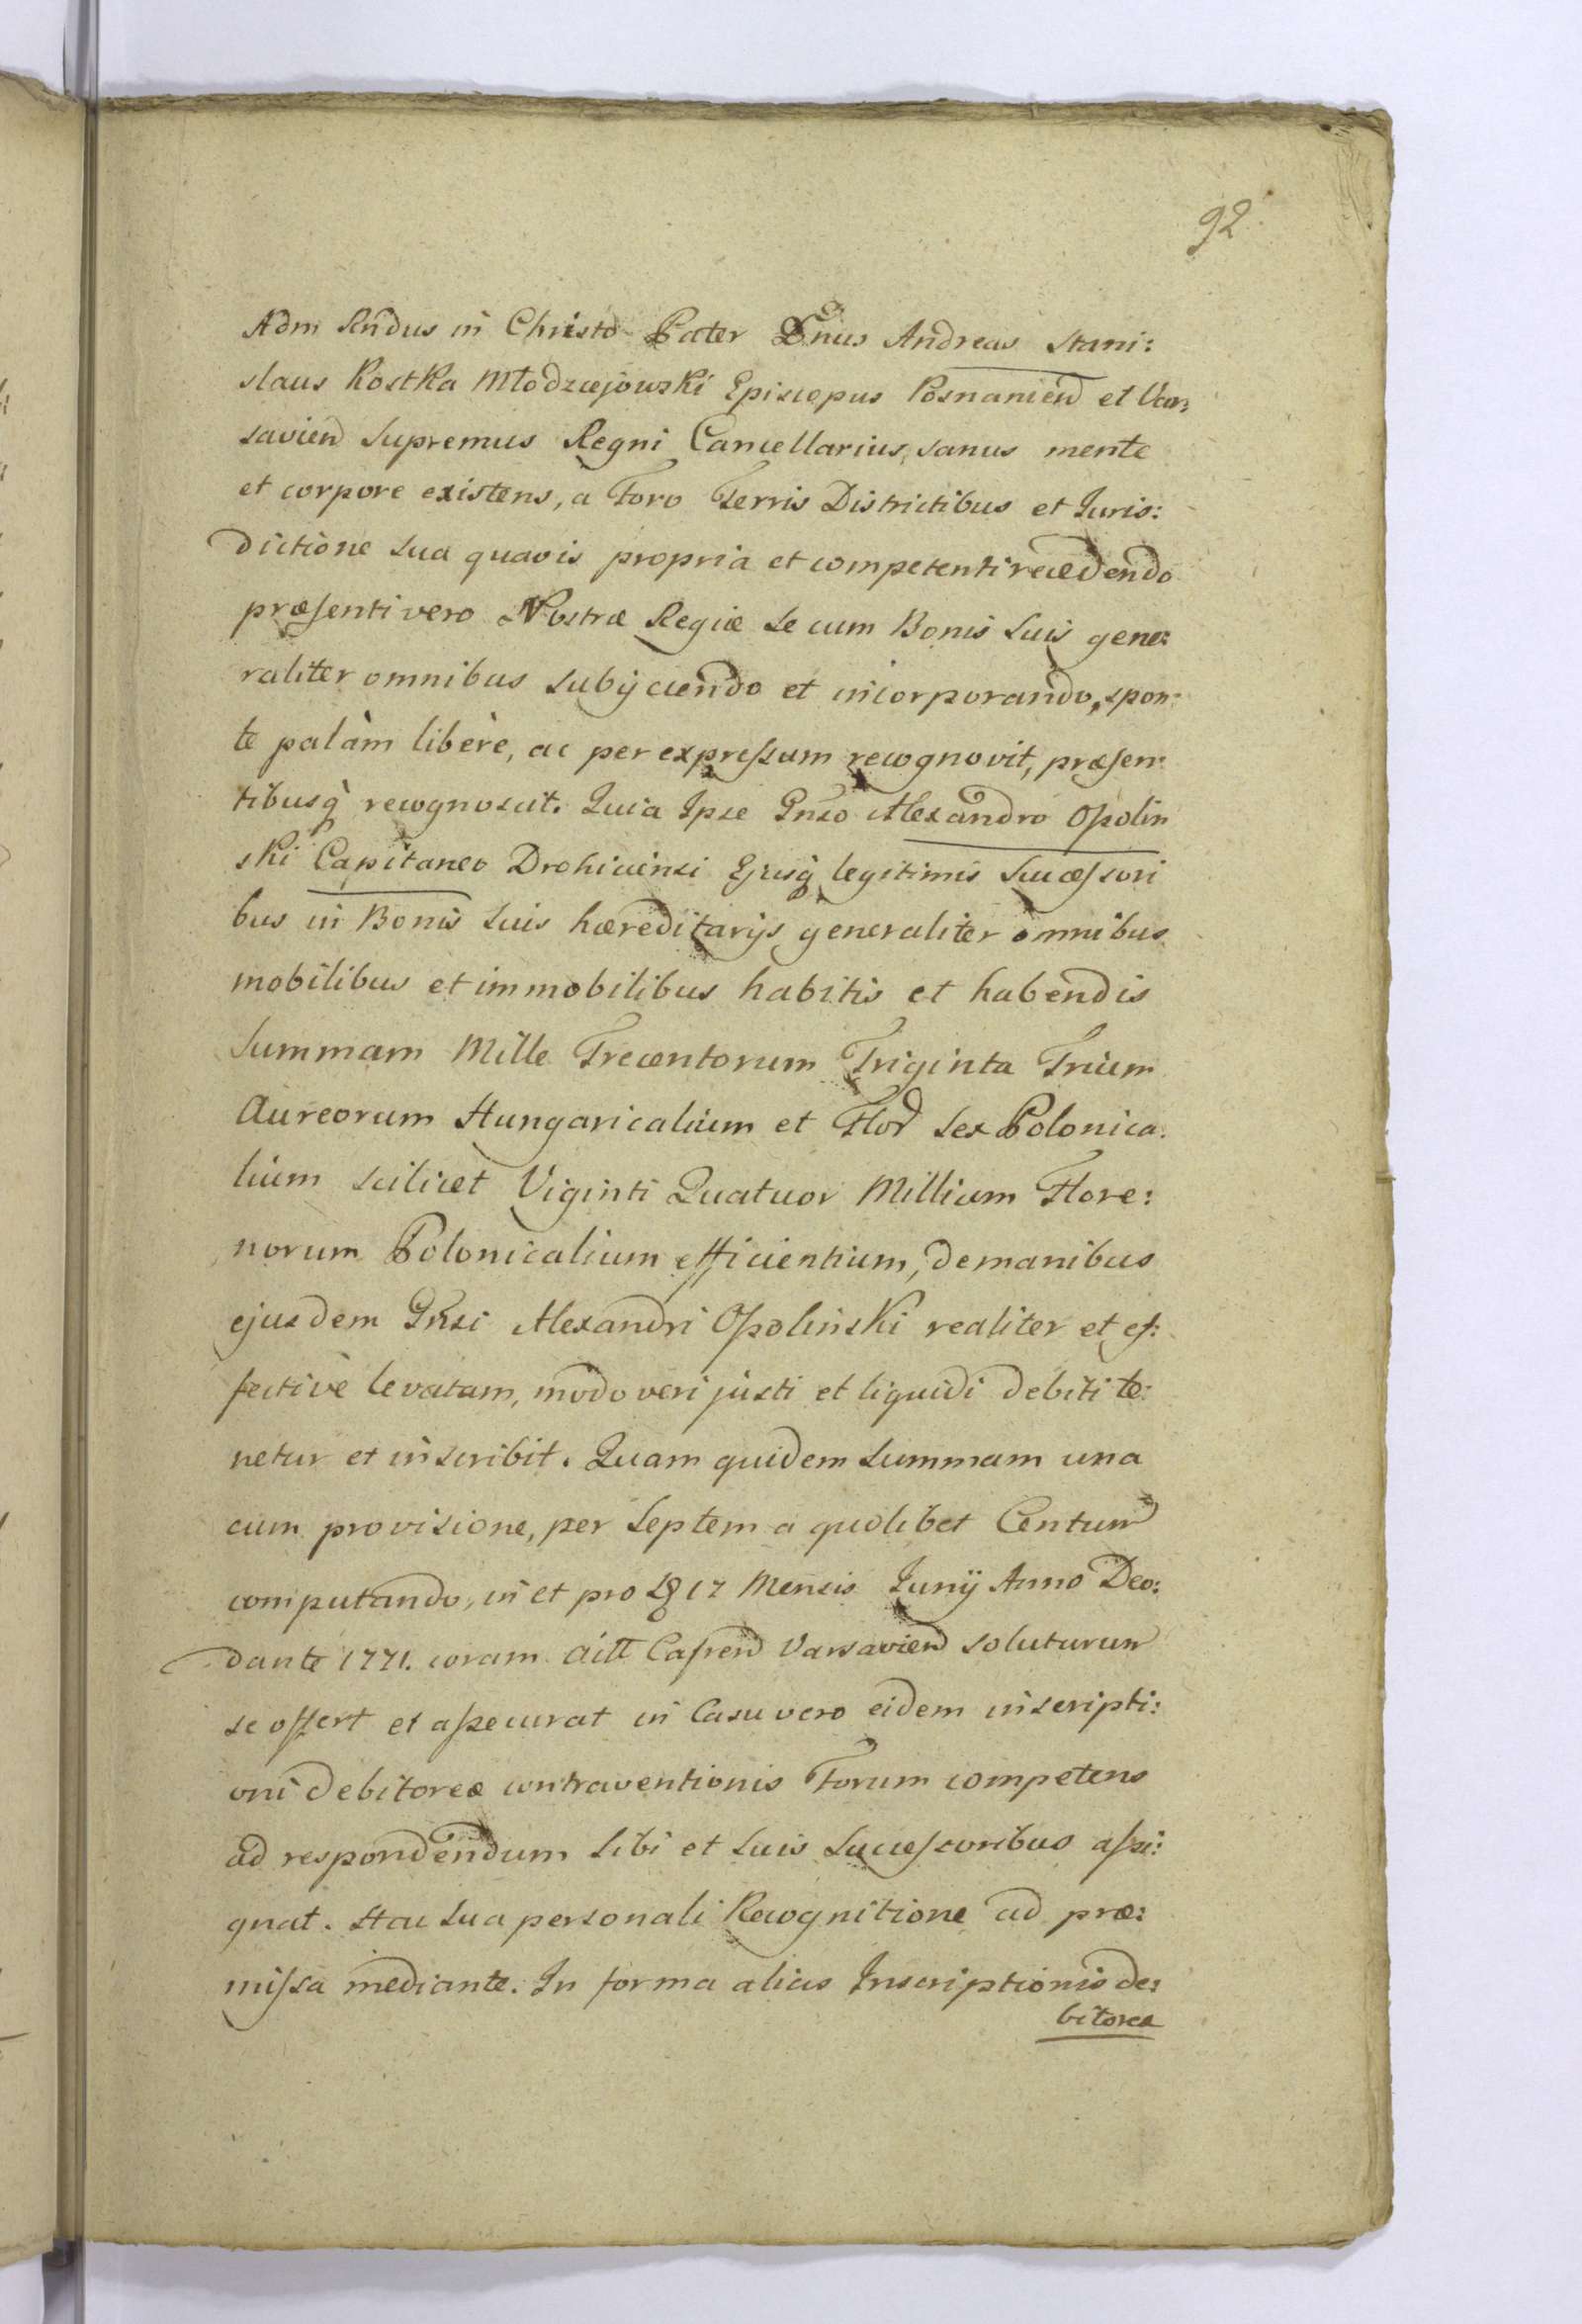 92
Adm Rndus in Christo Pater Dnus Andreas Stani:
slaus Kostka Młodziejowski Episcopus Posnanien et Var:
savien Supremus Regni Cancellarius, sanus mente
et corpore existens, a Foro Terris Districtibus et Juris:
dictione sua quavis propria et competenti recedendo
præsenti vero Nostræ Regiæ se cum Bonis suis gene:
raliter omnibus subijciendo et incorporando, spon:
te palàm liberè, ac per expressum recognovit, præsen:
tibusq recognoscit. Quia Ipse Gnso Alexandro Opolin
ski Capitaneo Drohicensi Ejusq legitimis Successori
bus in Bonis suis hæreditarijs generaliter omnibus
mobilibus et immobilibus habitis et habendis
Summam Mille Trecentorum Triginta Trium
Aureorum Hungaricalium et Flor sex Polonica:
lium scilicet Viginti Quatuor Millium Flore:
norum Polonicalium efficientium, de manibus
ejusdem Gnsi Alexandri Opolinski realiter et ef:
fectivè levatam, modo veri justi et liquidi debiti te:
netur et inscribit. Quam quidem summam una
cum provisione, per septem a quolibet Centum
computando, in et pro 17 Mensis Junij Anno Deo:
dante 1771. coram Actt Castren Varsavien soluturum
se offert et assecurat in Casu vero eidem inscripti:
oni debitoreæ contraventionis Forum competens
ad respondendum sibi et suis Successoribus assi:
gnat. Hac sua personali Recognitione ad præ:
missa mediante. In forma alias Inscriptionis de:
bitoreæ